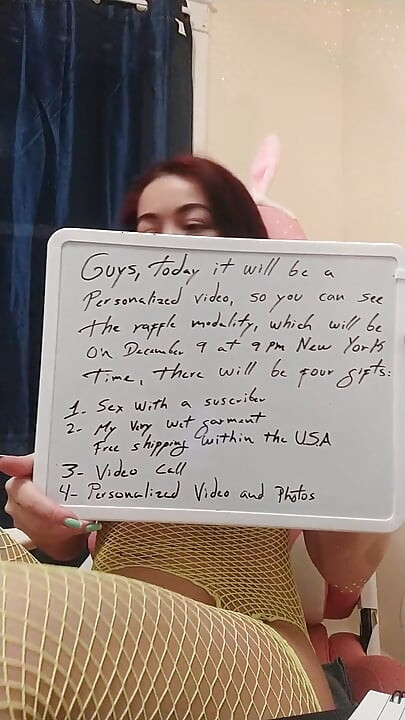 Guys, Today it will be a
Personalized video, so you can see
the raffle modality, which will be
on December 9 at 9 pm New York
Time, there will be four gifts:
1- Sex with a suscriber
2- My Very wet garment
Free shipping within the USA
3- Video Call
4- Personalized Video and Photos